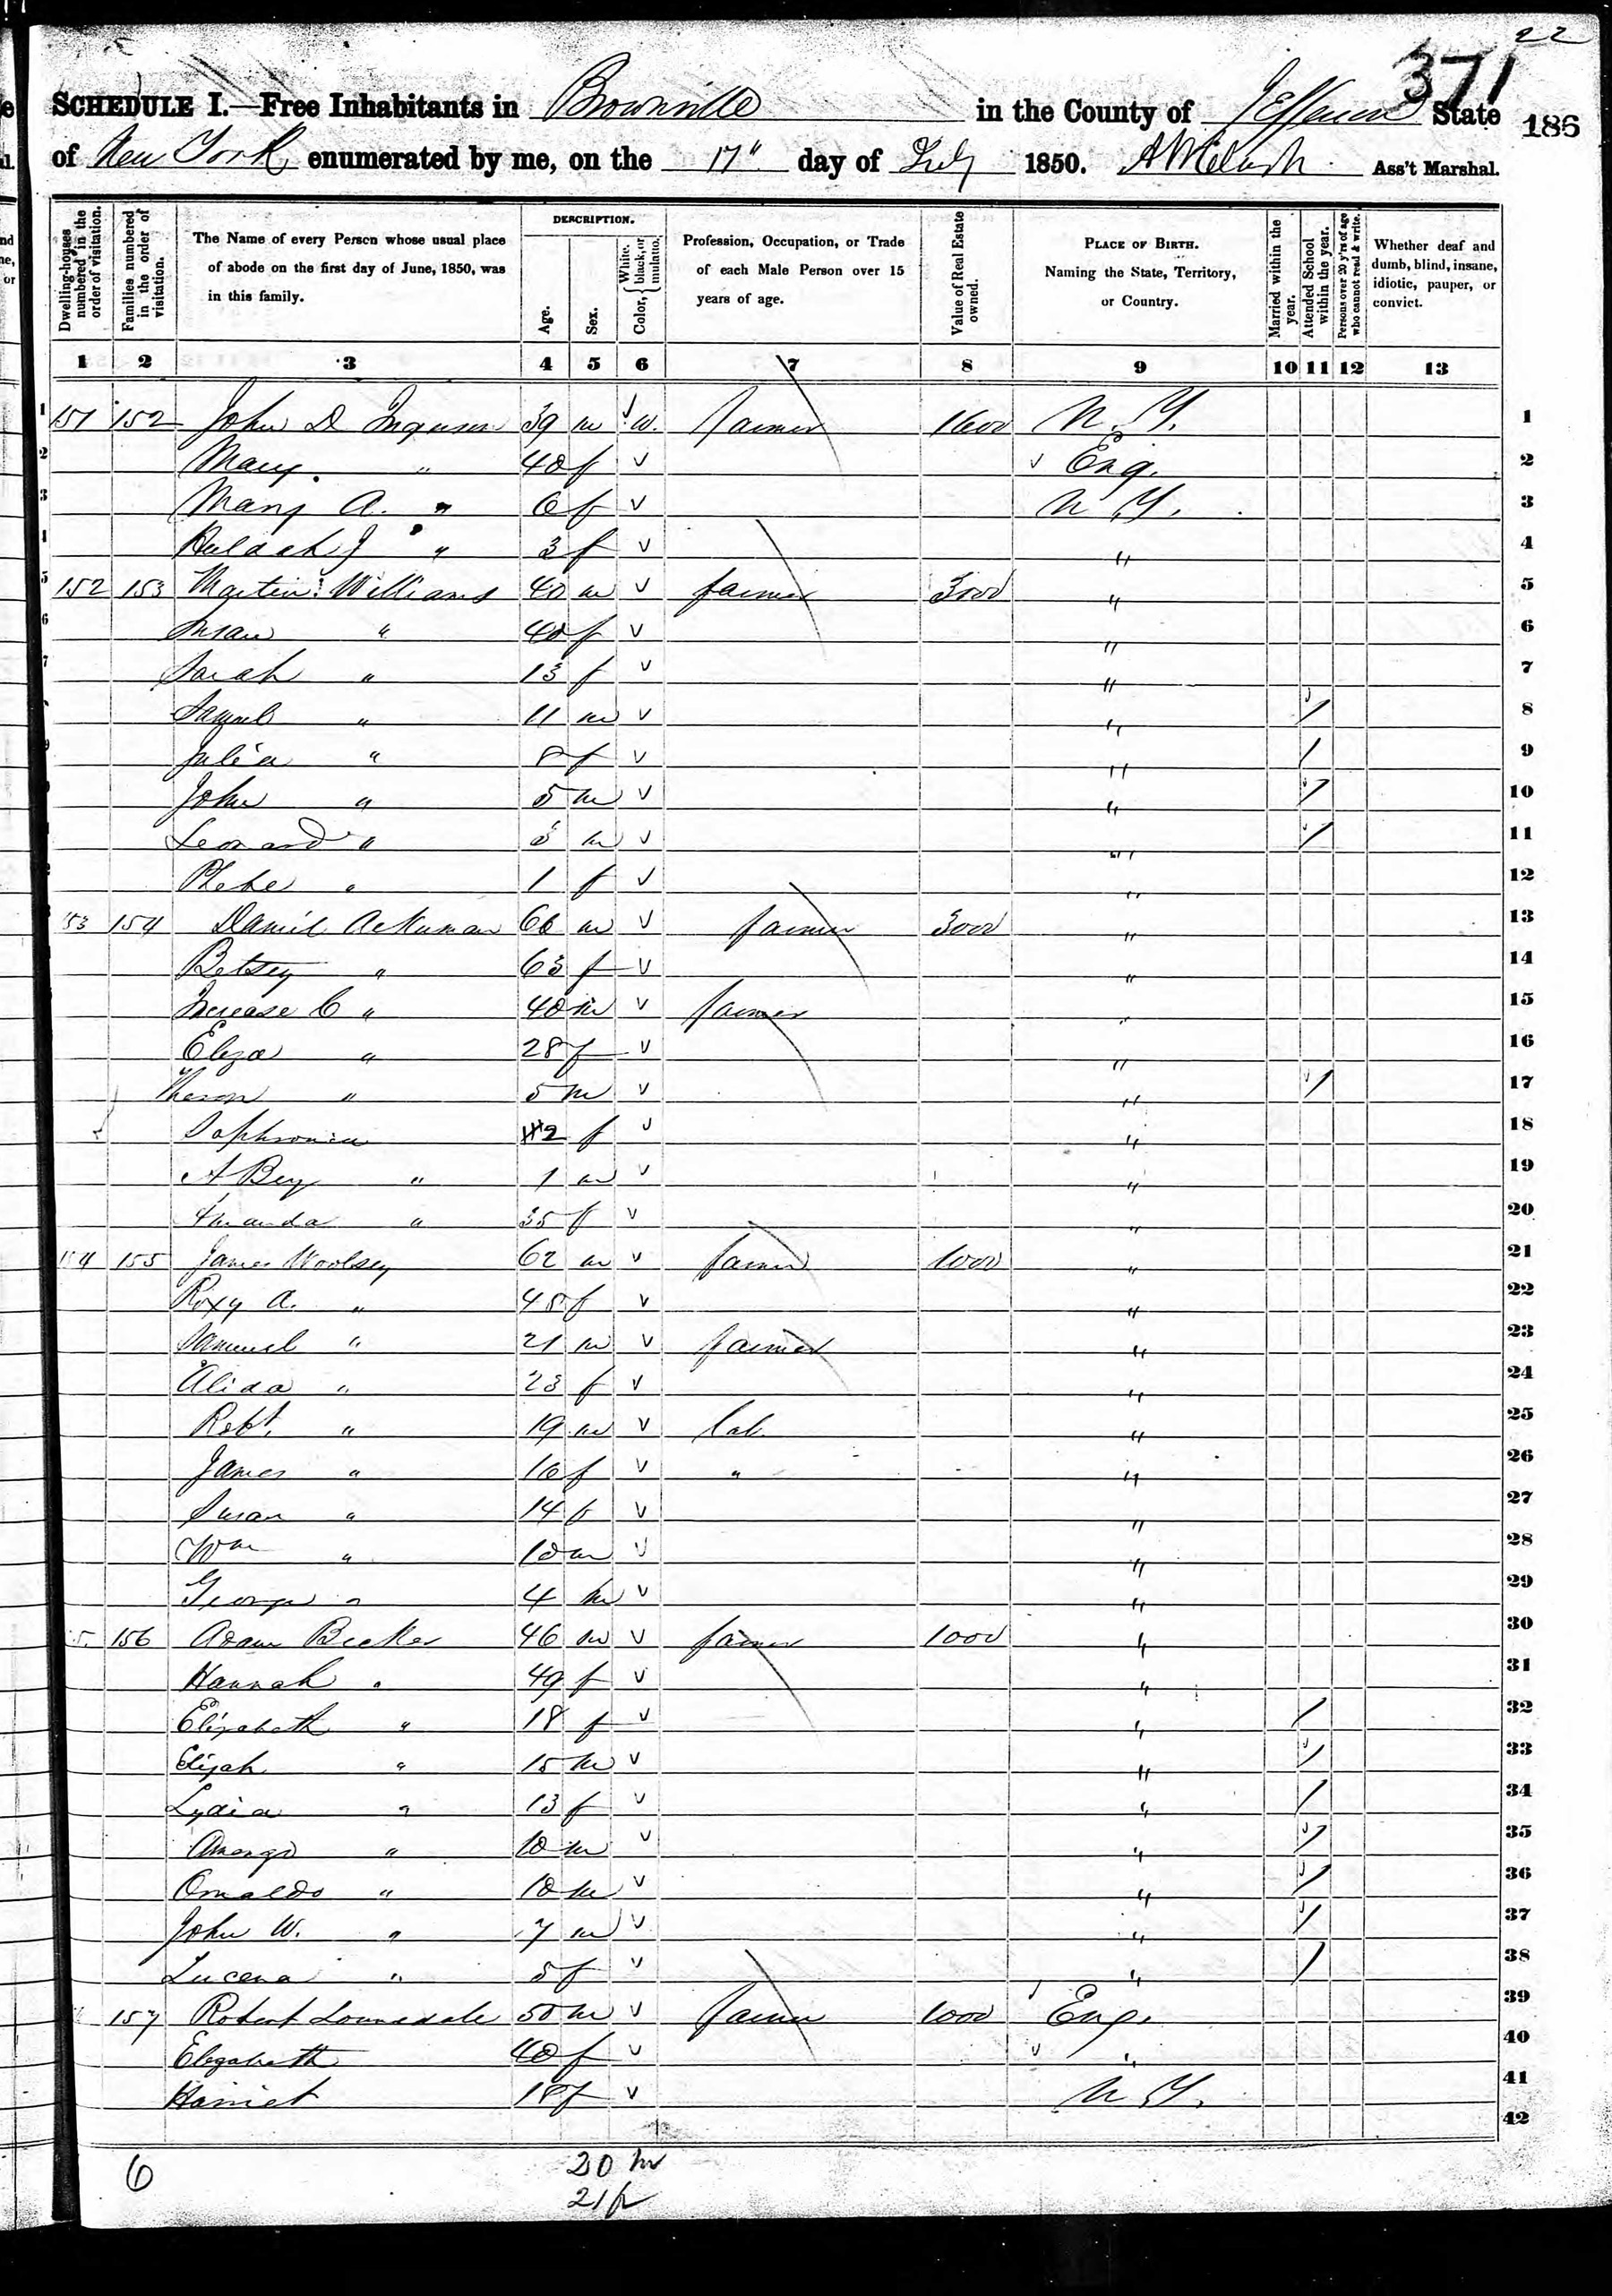 22
371
SCHEDULE I.—Free Inhabitants in Brownville in the County of Jefferson State 186
of New York enumerated by me, on the 17" day of July 1850. Ass't Marshal.
Dwelling-houses numbered in the order of visitation.
Families numbered in the order of visitation.
The Name of every Person whose usual place of abode on the first day of June, 1850, was in this family.
DESCRIPTION.
Age.
Sex.
Color, { White, black, or mulatto.
Profession, Occupation, or Trade of each Male Person over 15 years of age.
Value of Real Estate owned.
PLACE OF BIRTH. Naming the State, Territory, or Country.
Married within the year.
Attended School within the year.
Persons over 20 y'rs of age who cannot read & write.
Whether deaf and dumb, blind, insane, idiotic, pauper, or convict.
1 2 3 4 5 6 7 8 9 10 11 12 13
1 151 152 John D 39 m w. farmer 1600 N.Y. 1
2 Mary " 40 f √ √ Eng. 2
3 Mary A. " 6 f √ N.Y. 3
Huldah J " 3 f √ " 4
5 152 153 Martin Williams 40 m √ farmer 3000 " 5
6 Susan " 40 f √ " 6
7 Sarah " 13 f √ " 7
Samuel " 11 m √ " / 8
9 Julia " 8 f √ " / 9
John " 5 m √ " / 10
Leonard " 3 m √ " / 11
Phebe " 1 f √ " 12
153 154 Daniel Ackerman 66 m √ farmer 3000 " 13
Betsey " 63 f √ " 14
Increase C " 40 m √ farmer " 15
Eliza " 28 f √ " 16
Theron " 5 m √ " / 17
Sophronia 2 f √ " 18
A Bey " 1 m √ " 19
Amanda " 35 f √ " 20
154 155 James Woolsey 62 m √ farmer 1000 " 21
Roxy A. " 48 f √ " 22
Samuel " 21 m √ farmer " 23
Alida " 23 f √ " 24
Robt. " 19 m √ Lab. " 25
James " 16 f √ " " 26
Susan " 14 f √ " 27
Wm " 10 m √ " 28
George " 4 m √ " 29
5. 156 Adam Becker 46 m √ farmer 1000 " 30
Hannah " 49 f √ " 31
Elizabeth " 18 f √ " / 32
Elijah " 15 m √ " / 33
Lydia " 13 f √ " / 34
" 10 m √ " / 35
" 10 m √ " / 36
John W. " 7 m √ " / 37
Lucena " 5 f √ " / 38
157 Robert Lonnsdale 50 m √ farmer 1000 √ Eng. 39
Elizabeth 40 f √ √ " 40
Harriet 18 f √ N.Y. 41
42
6
20 m
21 f